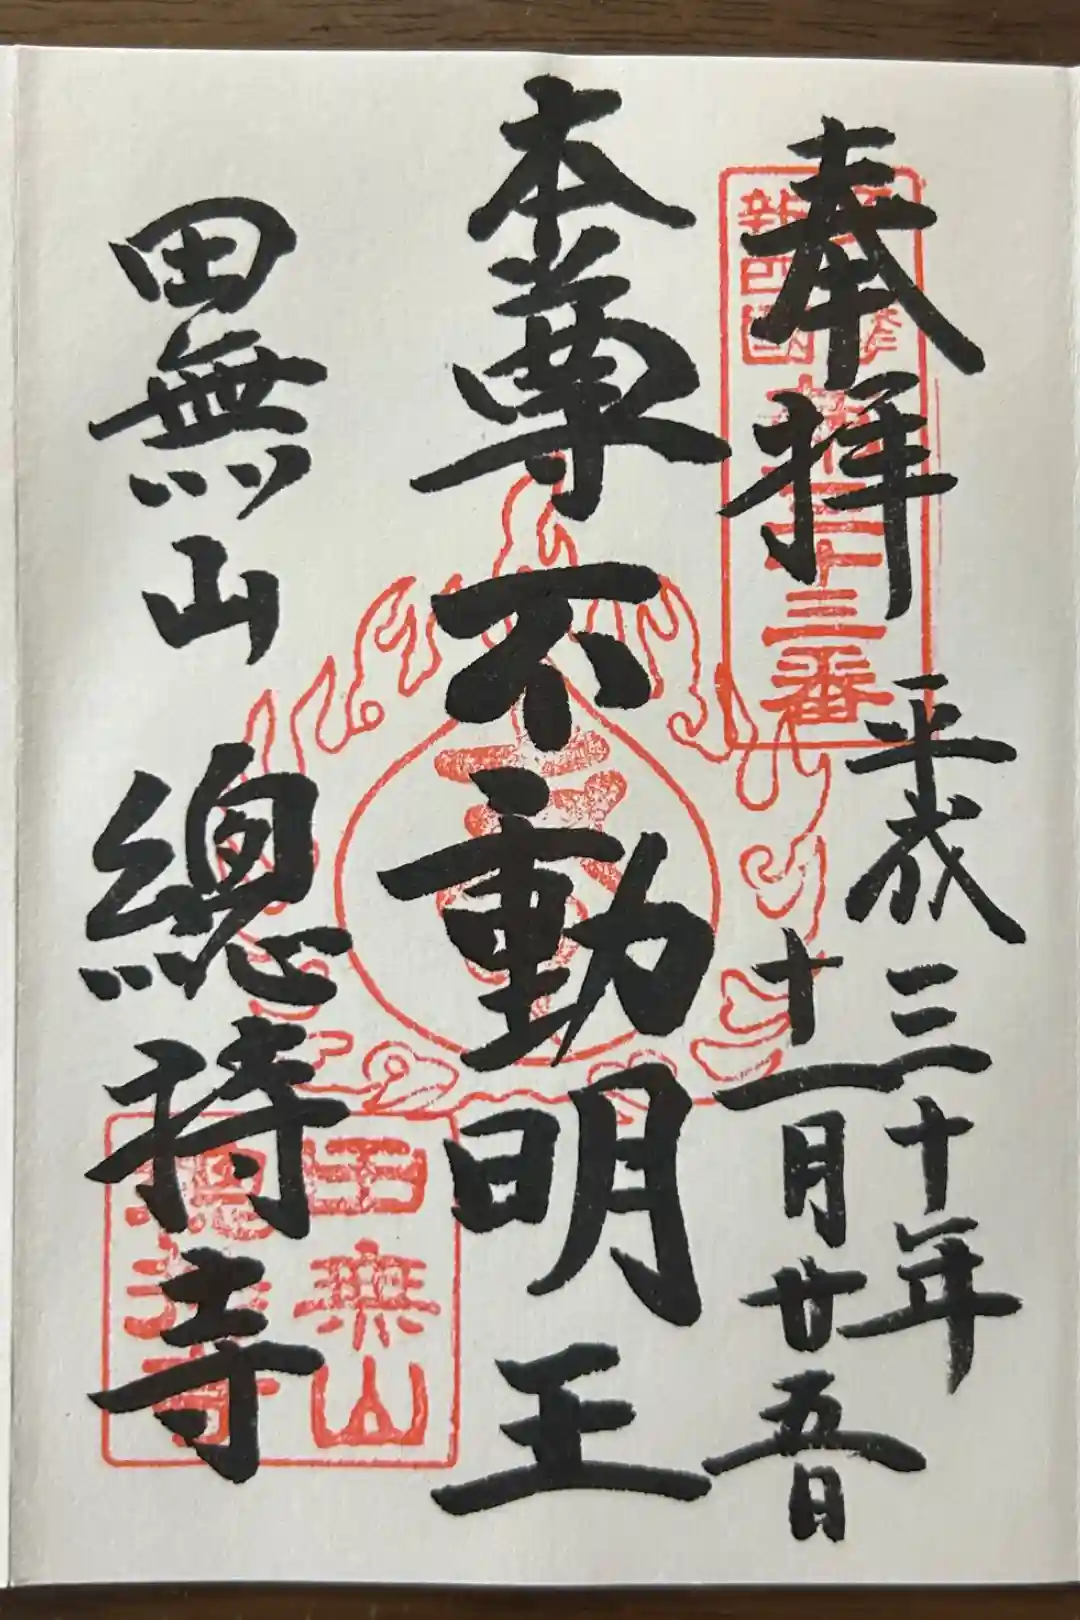 奉拝
平成三十年
十一月廿五日
本尊不動明王
田無山
總持寺
新四國
三十三番
田無山
總持寺